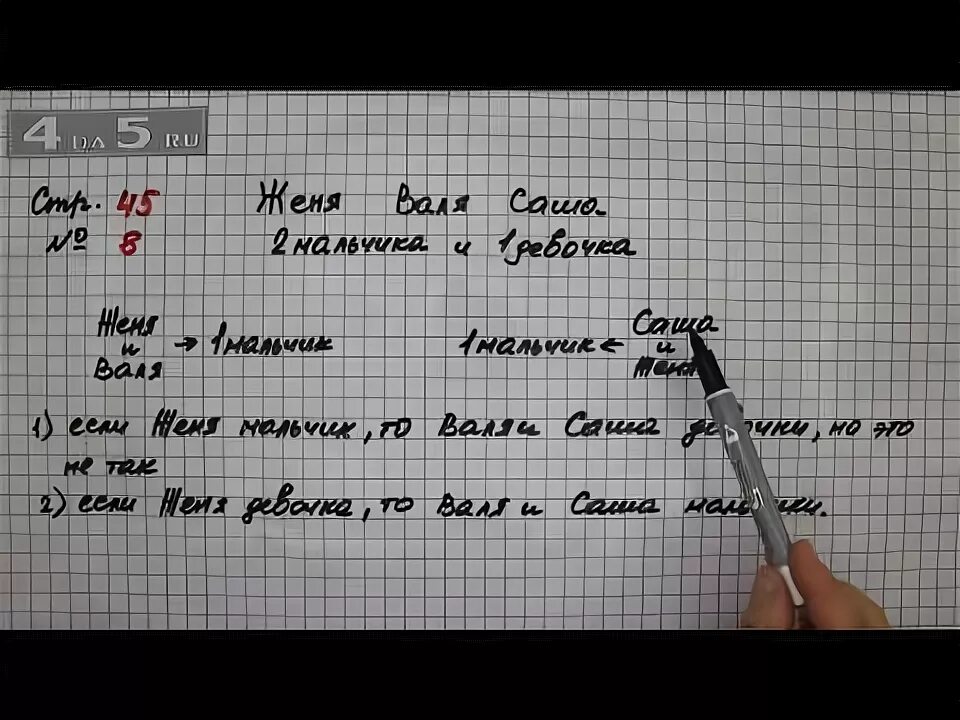 4 НА 5 RU
Стр. 45 Женя Валя Саша
№ 8 2 мальчика и 1 девочка
Женя и Валя → 1 мальчик
1 мальчик ← Саша и Женя
1) если Женя мальчик, то Валя и Саша девочки, но это
не так
2) если Женя девочка, то Валя и Саша мальчики.